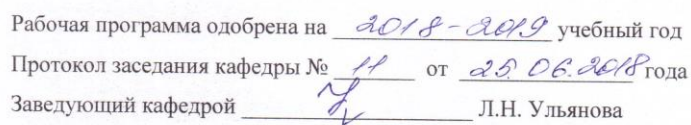 Рабочая программа одобрена на 2018-2019 учебный год
Протокол заседания кафедры № 11 от 25.06.2018 года
Заведующий кафедрой Л.Н. Ульянова